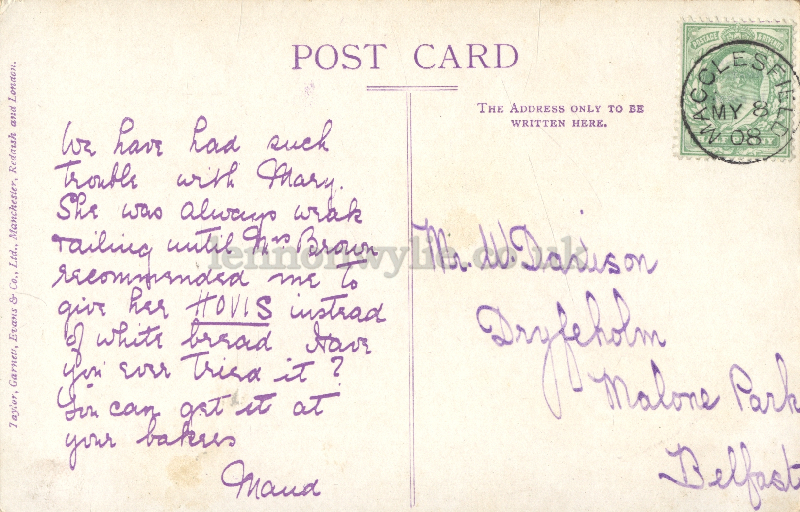 POST CARD
THE ADDRESS ONLY TO BE
WRITTEN HERE.
MACCLESFIELD
MY 8
08
Taylor, Garnett, Evans & Co., Ltd., Manchester, Reddish and London.
We have had such
trouble with Mary.
She was always weak
& ailing until Mrs Brown
recommended me to
give her HOVIS instead
of white bread Have
you ever tried it?
You can get it at
your bakers
Maud
Mr. W. Davison
Dryfeholm
Malone Park
Belfast
lennonwylie.co.uk